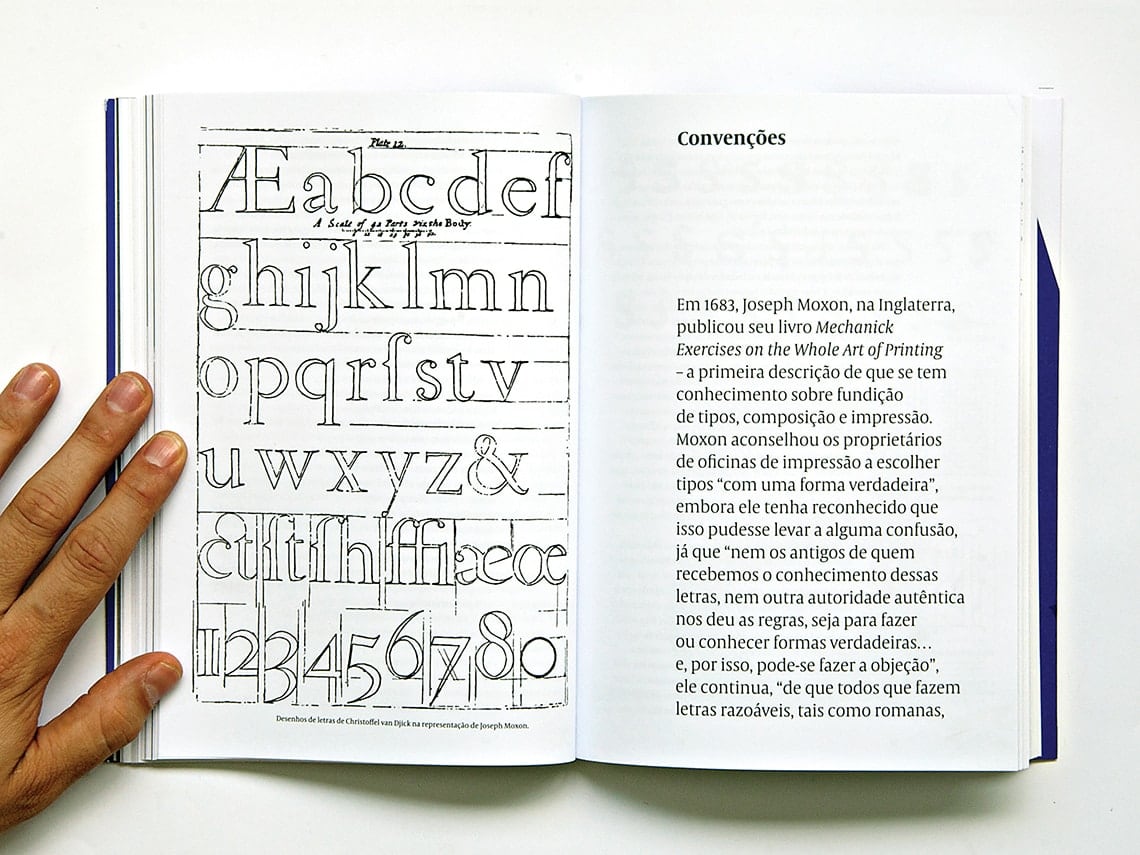 Plate 12.
Æ a b c d e f
A Scale of 42 Parts viz the Body.
g h i j k l m n
o p q r ſ s t v
u w x y z &
ct ſt ſh ffi æ œ
1 2 3 4 5 6 7 8 0
Desenhos de letras de Christoffel van Djick na representação de Joseph Moxon.
Convenções
Em 1683, Joseph Moxon, na Inglaterra,
publicou seu livro Mechanick
Exercises on the Whole Art of Printing
– a primeira descrição de que se tem
conhecimento sobre fundição
de tipos, composição e impressão.
Moxon aconselhou os proprietários
de oficinas de impressão a escolher
tipos “com uma forma verdadeira”,
embora ele tenha reconhecido que
isso pudesse levar a alguma confusão,
já que “nem os antigos de quem
recebemos o conhecimento dessas
letras, nem outra autoridade autêntica
nos deu as regras, seja para fazer
ou conhecer formas verdadeiras…
e, por isso, pode-se fazer a objeção”,
ele continua, “de que todos que fazem
letras razoáveis, tais como romanas,